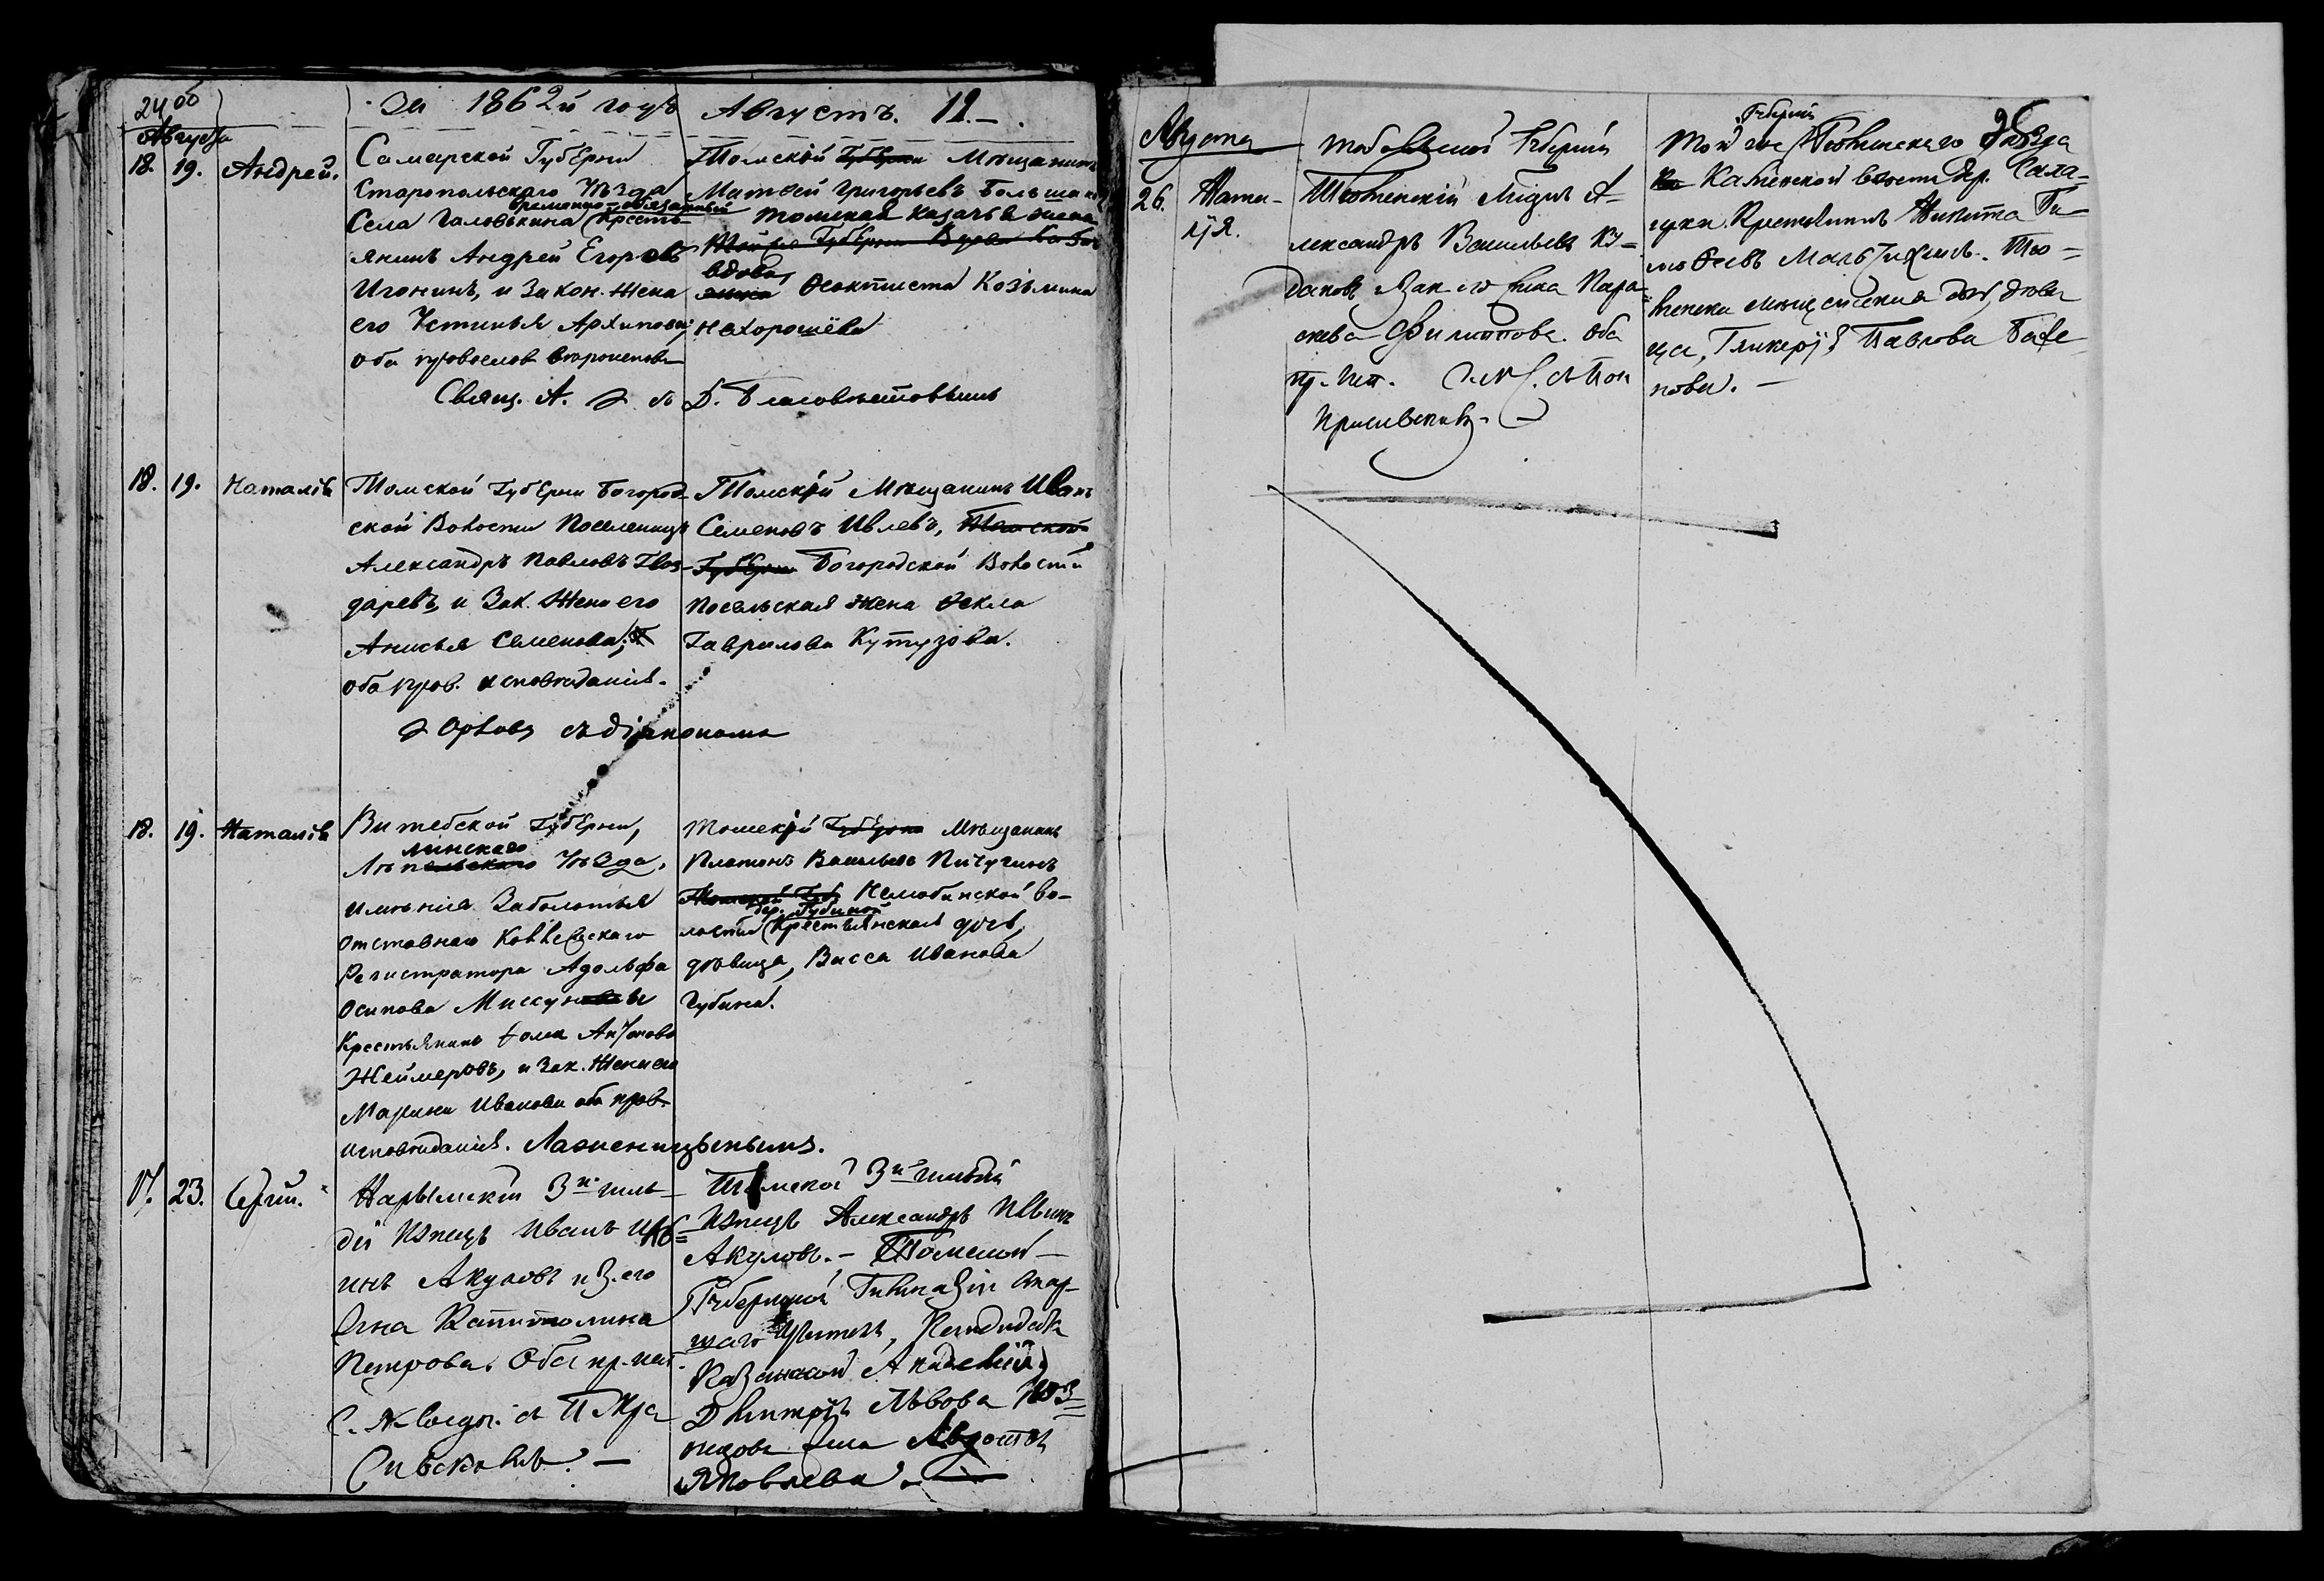 24 об
За 1862й годъ Августъ. 12.
Августа
18. 19. Андрей.
Самарской Губерніи
Старопольскаго Уѣзда
временно-обязанный
Села Головкина Кресть-
янинъ Андрей Егоровъ
Игонинъ, и Закон. жена
его Устинья Архипова;
оба православ. вѣроисповѣ
Свящ. А. съ Д. Благовѣстовымъ
Томскій Губерніи Мѣщанинъ
Матвей Григорьевъ Большаковъ
Томская казачья
Той же Губерніи Вдова
вдова
Ѳеоктиста Козьмина
Нехорошёва
18. 19. Наталія
Томской Губерніи Богород-
ской Волости Поселенецъ
Александръ Павловъ Гвоз-
даревъ, и Зак. Жена его
Анисья Семенова;
оба прав. исповѣданія.
Орловъ съ діакономъ
Томскій Мѣщанинъ Иванъ
Семеновъ Ивлевъ, Томской
Губерніи Богородской Волости
Посельская жена Ѳекла
Гаврилова Кутузова.
18. 19. Наталія
Витебской Губерніи,
линскаго
Лѣпельскаго Уѣзда,
имѣнія Заболотья
отставнаго Коллежскаго
Регистратора Адольфа
Осипова Миссуны
Крестьянинъ Ѳома Антонов
Жеймеровъ, и Зак. Жена его
Марина Иванова оба прав.
исповѣданія. Лаженицынымъ.
Томскій Губерніи Мѣщанинъ
Платонъ Васильевъ Пичугинъ
Томской Губ. Нелюбинской во-
дер. Губиной
лости Крестьянская дочь,
дѣвица, Васса Иванова
Губина.
17. 23. Сергій.
Нарымскій 3й гиль-
діи Купецъ Иванъ Иль-
инъ Акуловъ и З. его
жена Капитолина
Петрова. Оба пр. исп.
Томской 3й гильдіи
Купецъ Александръ Ильинъ
Акуловъ. - Томской
Губернской Гимназіи Стар-
шаго Учителя, Кандидата
Казанской Академіи
Дмитрія Львова
жена Авдотья
Яковлева.
Августа
26. Ната-
лія.
Тобольской Губерніи
Тюменскій Мѣщ. А-
лександръ Васильевъ Ку-
даковъ, Зак. его жена Пара-
скева Филиппова. Оба
пр. исп.
Губерніи
Той же Тюменскаго Уѣзда
Каменской волости Др. Сала-
Крестьянинъ Никита Ти-
моѳеевъ Мальчихинъ. Тю-
менская мѣщанская доч, дѣви-
ца, Гликерія Павлова Баже-
нова.